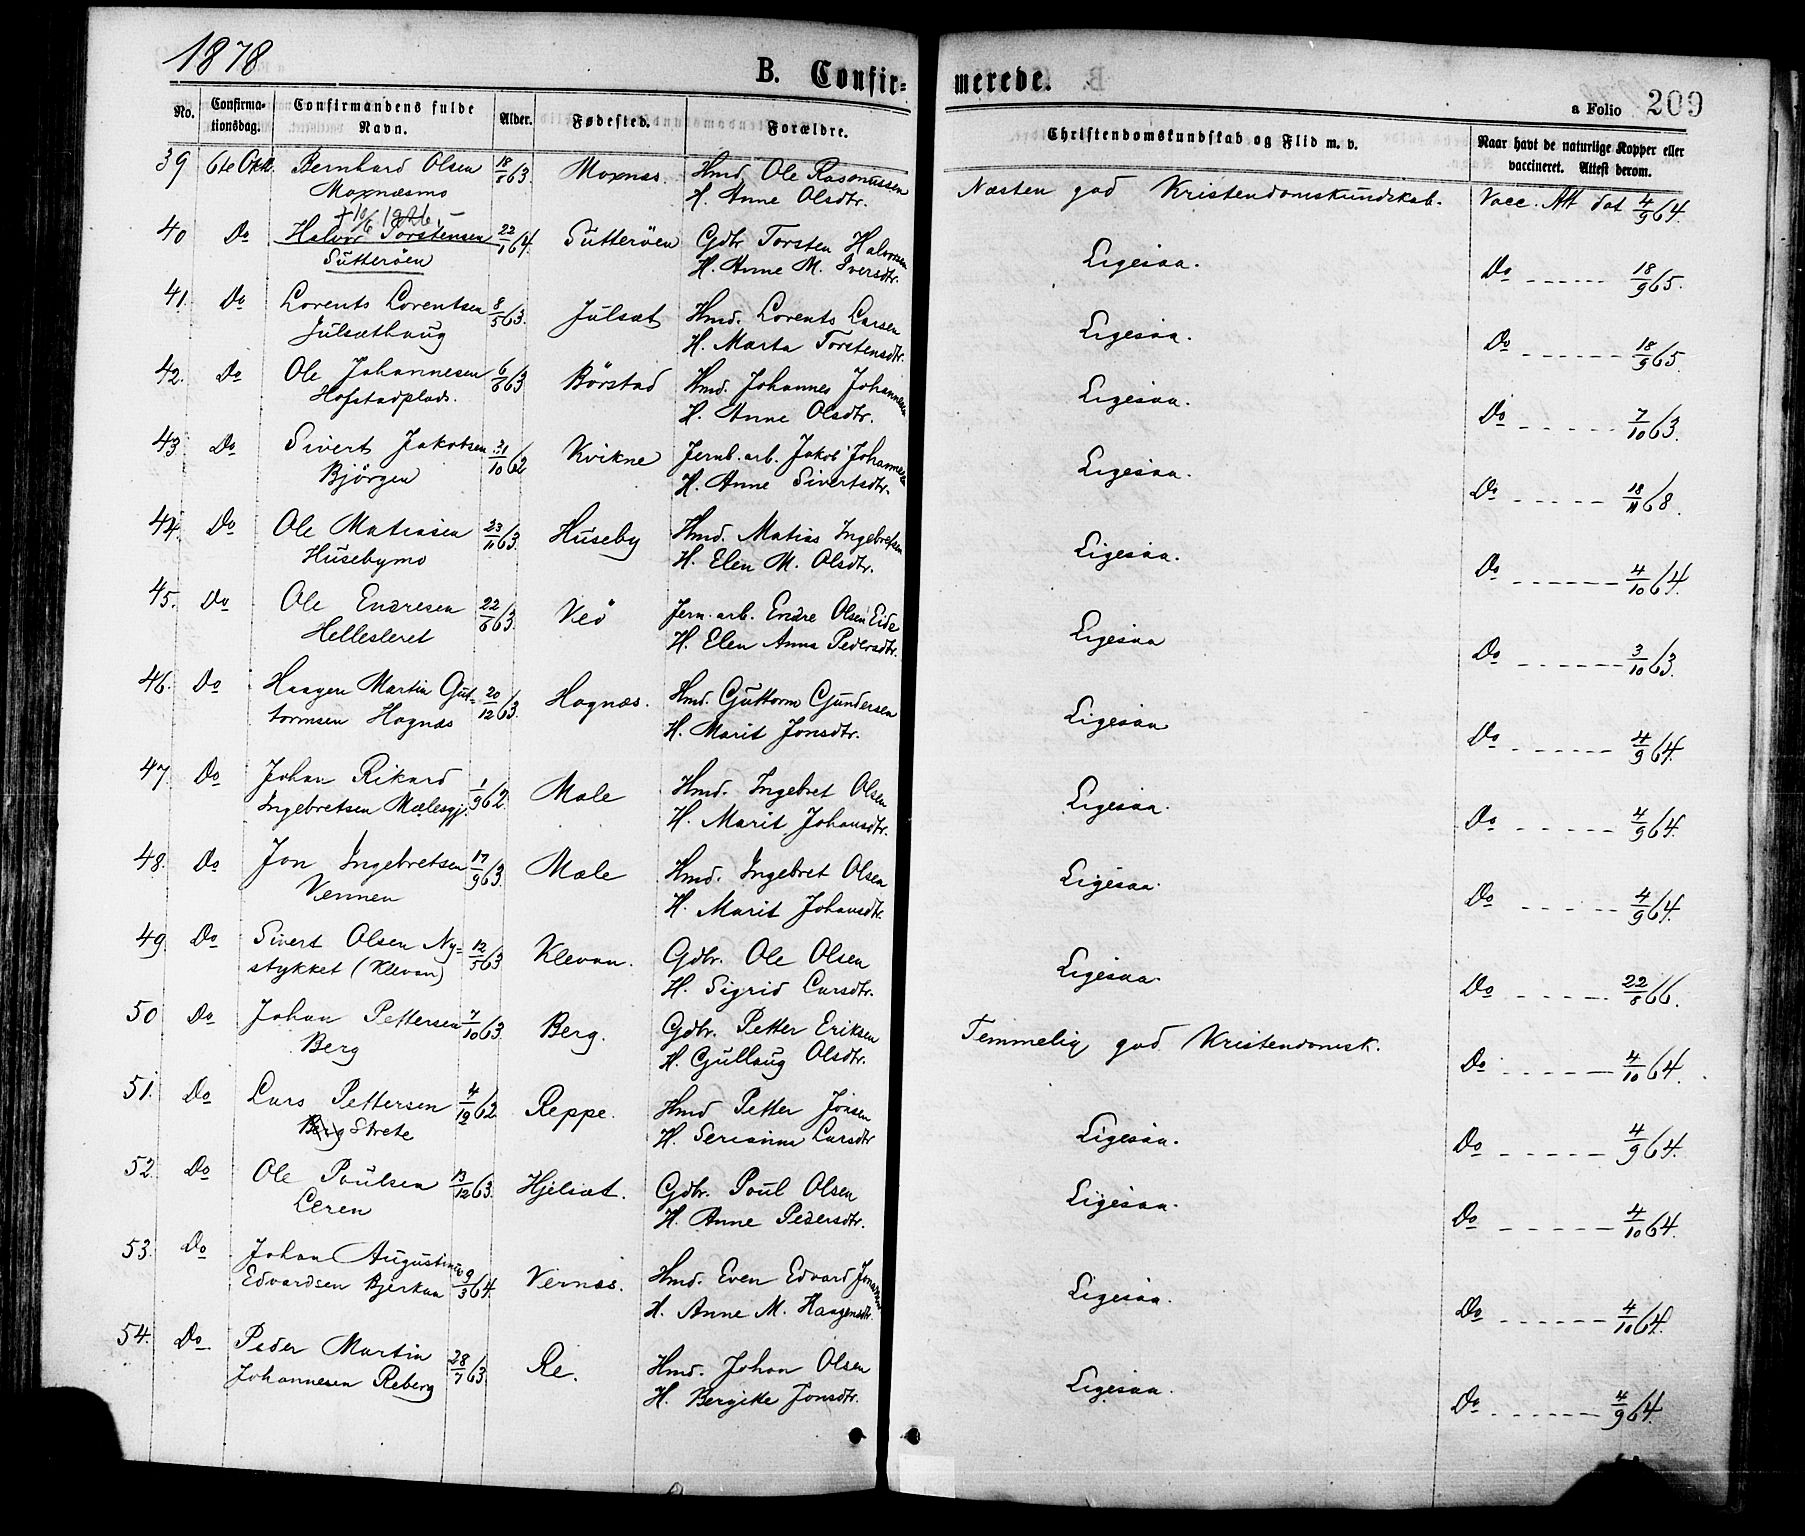 1878
B. Confir= merede.
a Folio 209
No. Confirma- tionsdag. Confirmandens fulde Navn. Alder. Fødested. Forældre. Christendomskundskab og Flid m. v. Naar havt de naturlige Kopper eller vaccineret. Attest derom.
39 6te Oktb. Bernhard Olsen 18/8 63. Moxnæs. Hmd. Ole Rasmussen Næsten god Kristendomskundskab. Vacc. Att. dat 4/9 64.
Moxnæsmo H. Anne Olsdtr.
40 Do Halvor Torstensen 22/1 64. Sutterøen Gdbr. Torsten Halvorsen Ligesaa. Do 18/9 65.
Sutterøen H. Anne M. Iversdtr.
41. Do Lorents Lorentsen 8/5 63. Julsæt Hmd. Lorents Larsen Ligesaa. Do 18/9 65
Julsæthaug H. Marta Torstensdtr.
42. Do Ole Johannesen 6/6 63 Börstad Hmd. Johannes Johannesen Ligesaa. Do 7/10 63.
Hofstadplads. H. Anne Olsdtr.
43 Do Sivert Jakobsen 31/10 62 Kvikne Jernb.arb. Jakob Johannesen Ligesaa. Do 18/11 68.
Bjørgen H. Anne Sivertsdtr.
44. Do Ole Matiasen 23/11 63. Huseby Hmd. Matias Ingebretsen Ligesaa. Do 4/10 64.
Husebymo H. Elen M. Olsdtr.
45. Do Ole Endresen 22/6 63. Veö Jern.arb. Endre Olsen Eide Ligesaa Do 3/10 63.
Hellesleret H. Elen Anna Pedersdtr.
46. Do Haagen Martin Gut- 20/12 63. Hognæs. Hmd. Guttorm Gundersen Ligesaa Do 4/9 64.
tormsen Hognæs H. Marit Jonsdtr.
47 Do Johan Rikard 1/9 62. Mæle Hmd. Ingebret Olsen Ligesaa. Do 4/9 64.
Ingebretsen Mælesgj. H. Marit Johansdtr.
48. Do Jon Ingebretsen 17/9 63. Mæle Hmd. Ingebret Olsen Ligesaa. Do 4/9 64.
Vennen H. Marit Johansdtr.
49. Do Sivert Olsen Ny= 12/5 63 Klevan. Gdbr. Ole Olsen Ligesaa. Do 22/8 66.
stykket (Klevan) H. Sigrid Larsdtr.
50 Do Johan Pettersen 7/10 63. Berg. Gdbr. Petter Eriksen Temmelig god Kristendomsk. Do 4/10 64.
Berg H. Gullaug Olsdtr.
51. Do Lars Pettersen 4/12 62. Reppe. Hmd Petter Jonsen Ligesaa. Do 4/9 64.
Berg Strete H. Serianna Larsdtr
52. Do Ole Poulsen 13/12 63. Hjelsæt. Gdbr. Poul Olsen Ligesaa. Do 4/10 64.
Leren H. Anne Pedersdtr.
53. Do Johan Augustinus 9/3 64. Vernæs. Hmd. Even Edvard Ligesaa. Do 4/10 64.
Edvardsen Bjerkan H. Anne M. Haagensdtr.
54. Do Peder Martin 28/7 63. Re. Hmd. Johan Olsen Ligesaa. Do 4/9 64.
Johannesen Reberg H. Bergitte Jonsdtr.